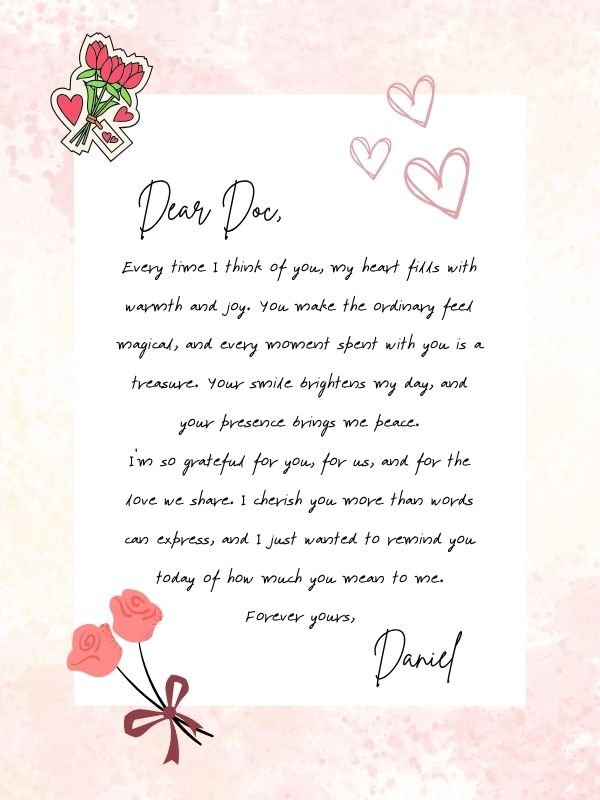 Dear Doc,
Every time I think of you, my heart fills with
warmth and joy. You make the ordinary feel
magical, and every moment spent with you is a
treasure. Your smile brightens my day, and
your presence brings me peace.
I'm so grateful for you, for us, and for the
love we share. I cherish you more than words
can express, and I just wanted to remind you
today of how much you mean to me.
Forever yours,
Daniel